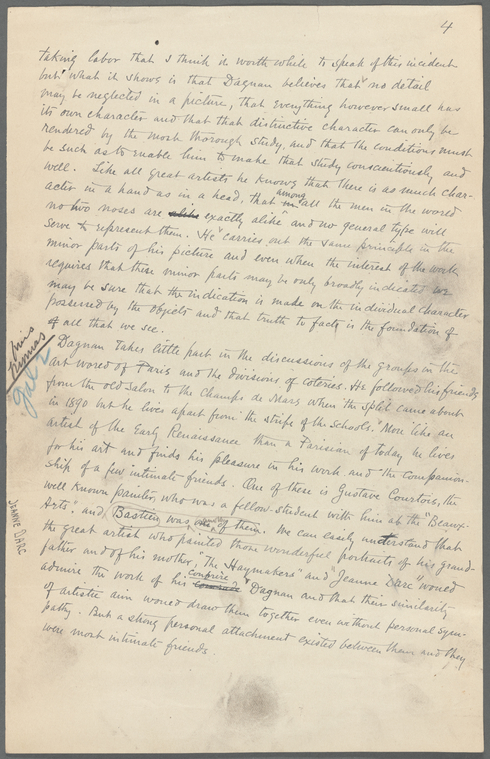 4
taking labor that I think it worth while to speak of this incident
but what it shows is that Dagnan believes that no detail
may be neglected in a picture, that everything however small has
its own character and that that distinctive character can only be
rendered by the most thorough study, and that the conditions must
be such as to enable him to make that study conscientiously and
well. Like all great artists he knows that there is as much char-
acter in a hand as in a head, that among all the men in the world
no two noses are exactly alike and no general type will
serve to represent them. He carries out the same principle in the
minor parts of his picture and even when the interest of the work
requires that these minor parts may be only broadly indicated we
may be sure that the indication is made on the individual character
possessed by the objects and that truth to facts is the foundation of
all that we see.
Dagnan takes little part in the discussions of the groups in the
art world of Paris and the divisions of coteries. He followed his friends
from the old Salon to the Champs de Mars when the split came about
in 1890 but he lives apart from the strife of the schools. More like an
artist of the Early Renaissance than a Parisian of today he lives
for his art and finds his pleasure in his work and the companion-
ship of a few intimate friends. One of these is Gustave Courtois, the
well known painter, who was a fellow-student with him at the "Beaux-
Arts", and Bastien was of them. We can easily understand that
the great artist who painted those wonderful portraits of his grand-
father and of his mother, "The Haymakers" and "Jeanne Darc" would
admire the work of his confrère Dagnan and that their similarity
of artistic aim would draw them together even without personal sym-
pathy. But a strong personal attachment existed between them and they
were most intimate friends.
Gal 2
JEANNE DARC